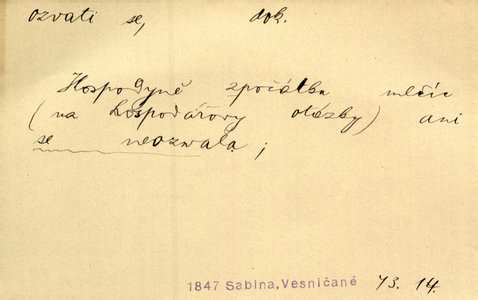 ozvati se, dok.
Hospodyně zpočátku mlčíc
(na hospodářovy otázky) ani
se neozwala;
1847 Sabina, Vesničané 73. 14.